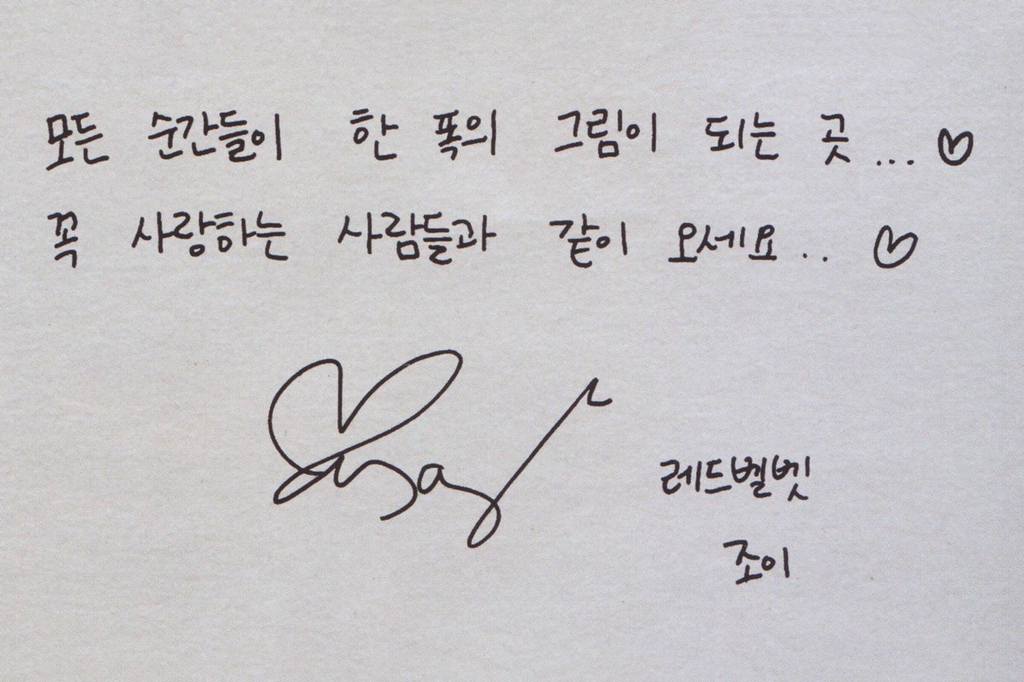 모든 순간들이 한 폭의 그림이 되는 곳... ♡
꼭 사랑하는 사람들과 같이 오세요.. ♡
레드벨벳
조이